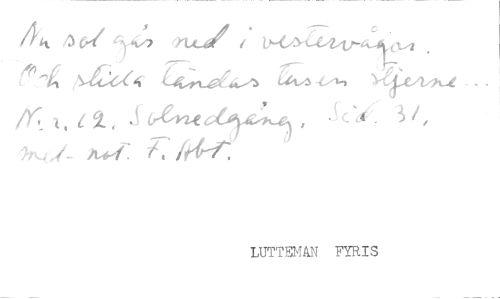 Nu sol gås ned i vestervågor.
Och stilla tändas tusen stjerne...
N:r. 12. Solnedgång. Sid. 31.
med not. F. Abt.
LUTTEMAN FYRIS